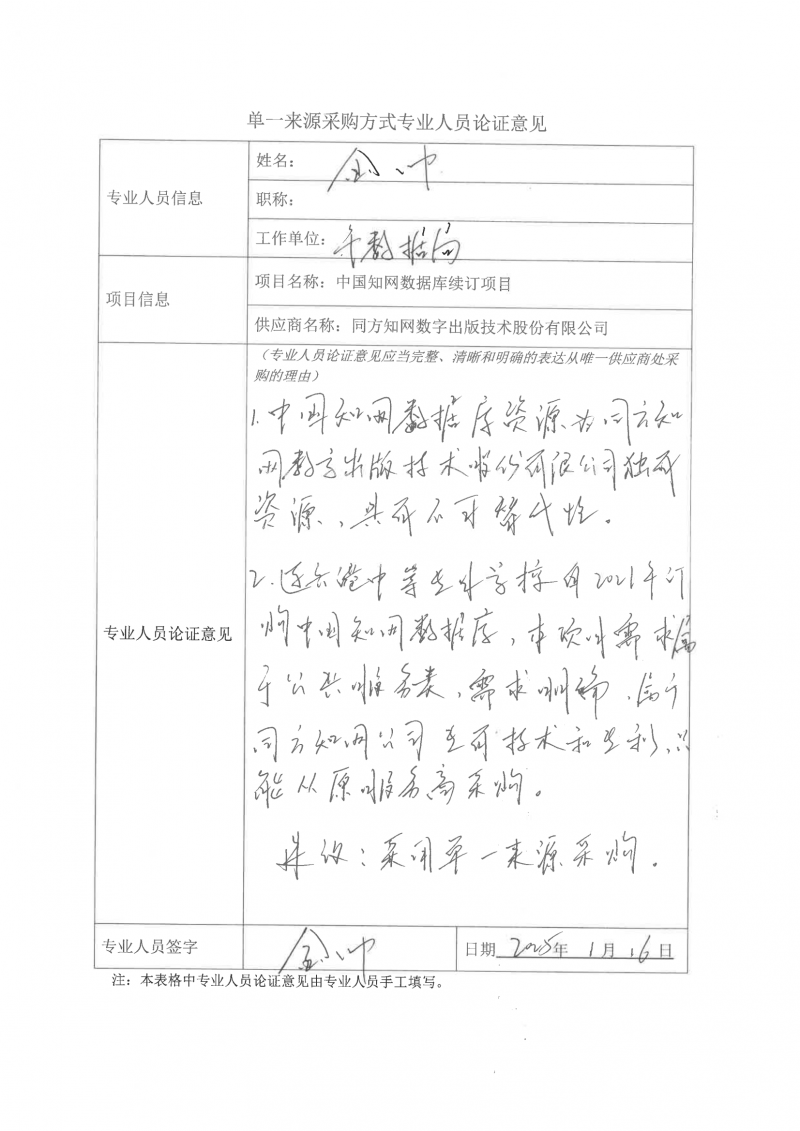 单一来源采购方式专业人员论证意见
专业人员信息
姓名：金
职称：
工作单位：数据局
项目信息
项目名称：中国知网数据库续订项目
供应商名称：同方知网数字出版技术股份有限公司
（专业人员论证意见应当完整、清晰和明确的表达从唯一供应商处采
购的理由）
专业人员论证意见
1.中国知网数据库资源为同方知
网数字出版技术股份有限公司独有
资源，具有不可替代性。
2.连云港中等专业学校自2021年订
购中国知网数据库，本项目需求属
于公共服务类，需求明确，属于
同方知网公司专有技术和专利，只
能从原服务商采购。
建议：采用单一来源采购。
专业人员签字
金
日期 2025年 1月 16日
注：本表格中专业人员论证意见由专业人员手工填写。